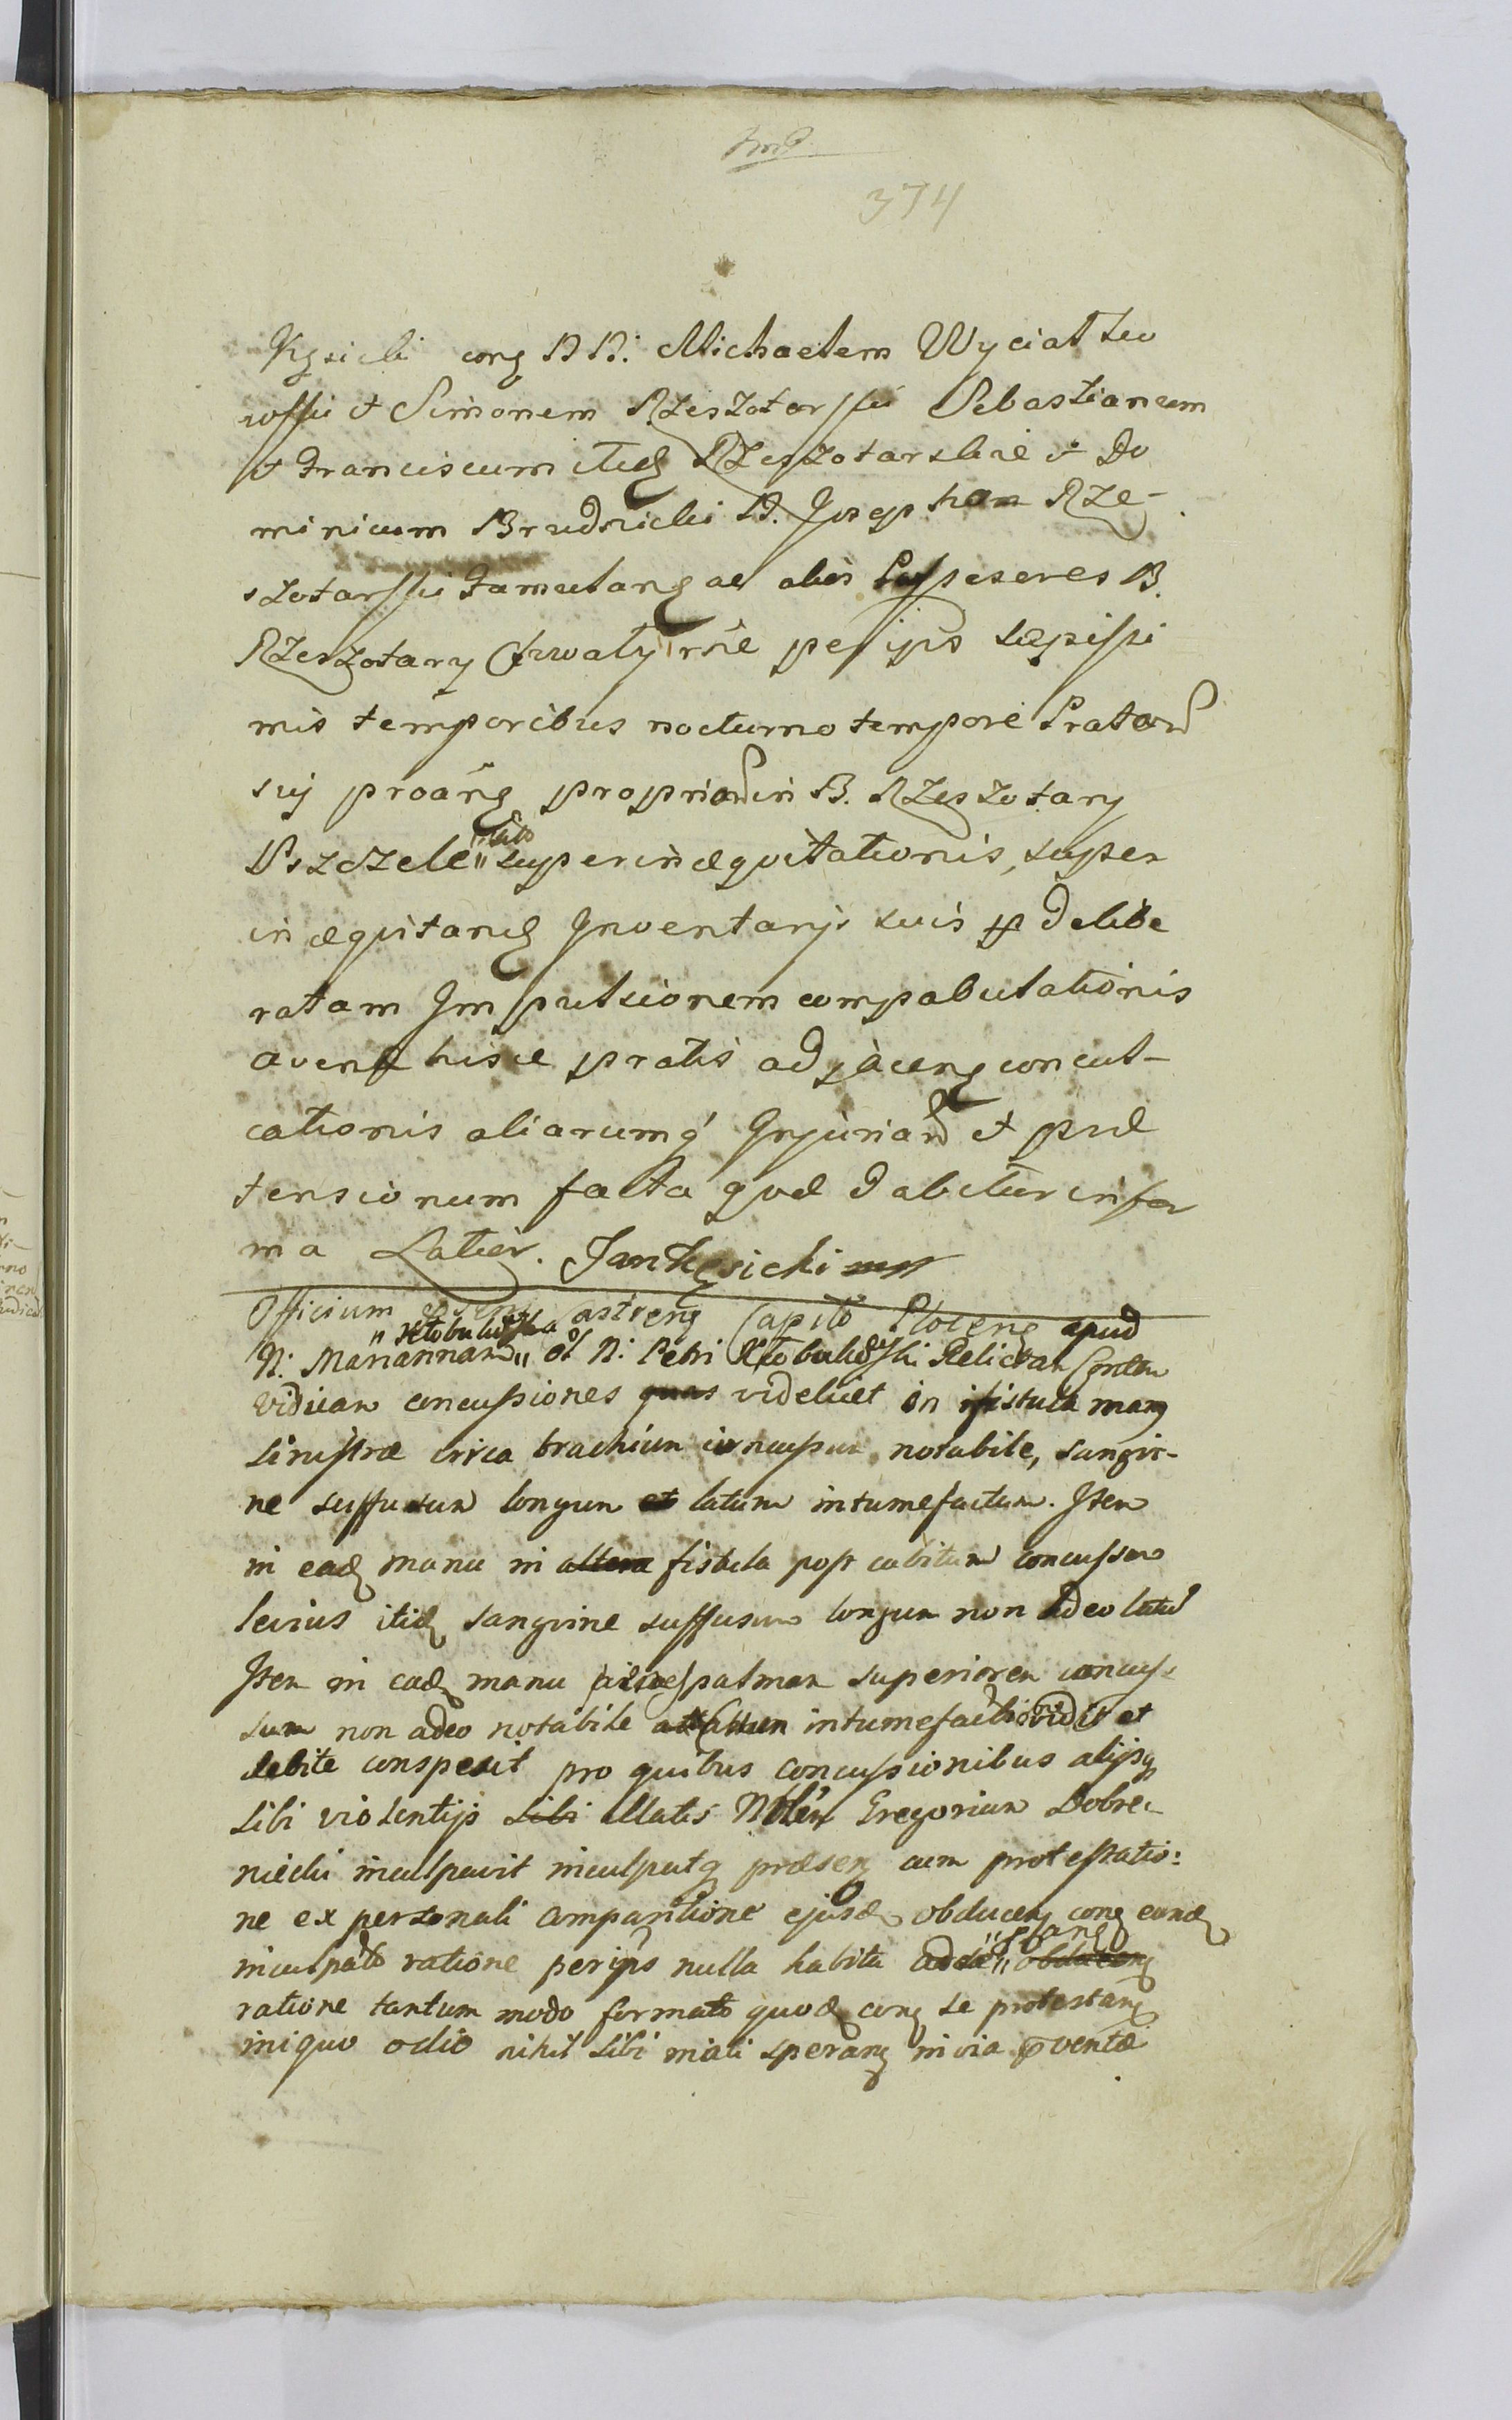 374
Kęsicki cong NN: Michaelem Wyciałko
wski et Simonem Rzeszotarski Sebastianum
et Franciscum itidę Rzeszotarskie et Do
minicum Brudnicki N. Josephum Rze-
szotarski Famulanę ac alios Pospeseres B.
Rzeszotary Chwały rne per ipsos sæpissi
mis temporibus nocturno tempore Prator
sui proãnę propriar in B. Rzeszotary
Pszczele superinæquitationis, super
inæquitanę Inventarijs suis p delibe
ratam Impulsionem compabulationis
avenæ hisce pratis adjacenę concul-
cationis aliarumq Injuriar et præ
tensionum facta quæ dabitur in for
ma Latiõr. Jan Kęsicki mp
Officium castrenę Capitõ Plocenę apud
N: Mariannam " Kłobukowska " ol N: Petri Kłobukowski Relictam
viduam concussiones videlicet in fistula manę
sinistræ circa brachium concussum notabile, sangvi-
ne suffusum longum et latum intumefactum. Item
in eadę manu in fistula post cubitum concussum
levius itidę sangvine suffusum longum non adeo latum
Item in eadę manu palmam superiorem concus-
sum non adeo notabile intumefactũ vidit et
debite conspexit pro quibus concussionibus alijsq
sibi violentijs sibi illatis Nblem Gregorium Dobrzy-
niecki inculpavit inculpatq præsenę cum protestatio:
ne ex personali comparitione ejusdę obducenę cong eundę
inculpatõ ratione per ipsũ nulla habita obducenę
ratione tantum modo formatõ quodę cong se protestanę
iniquo odio nihil sibi mali speranę in via pventæ